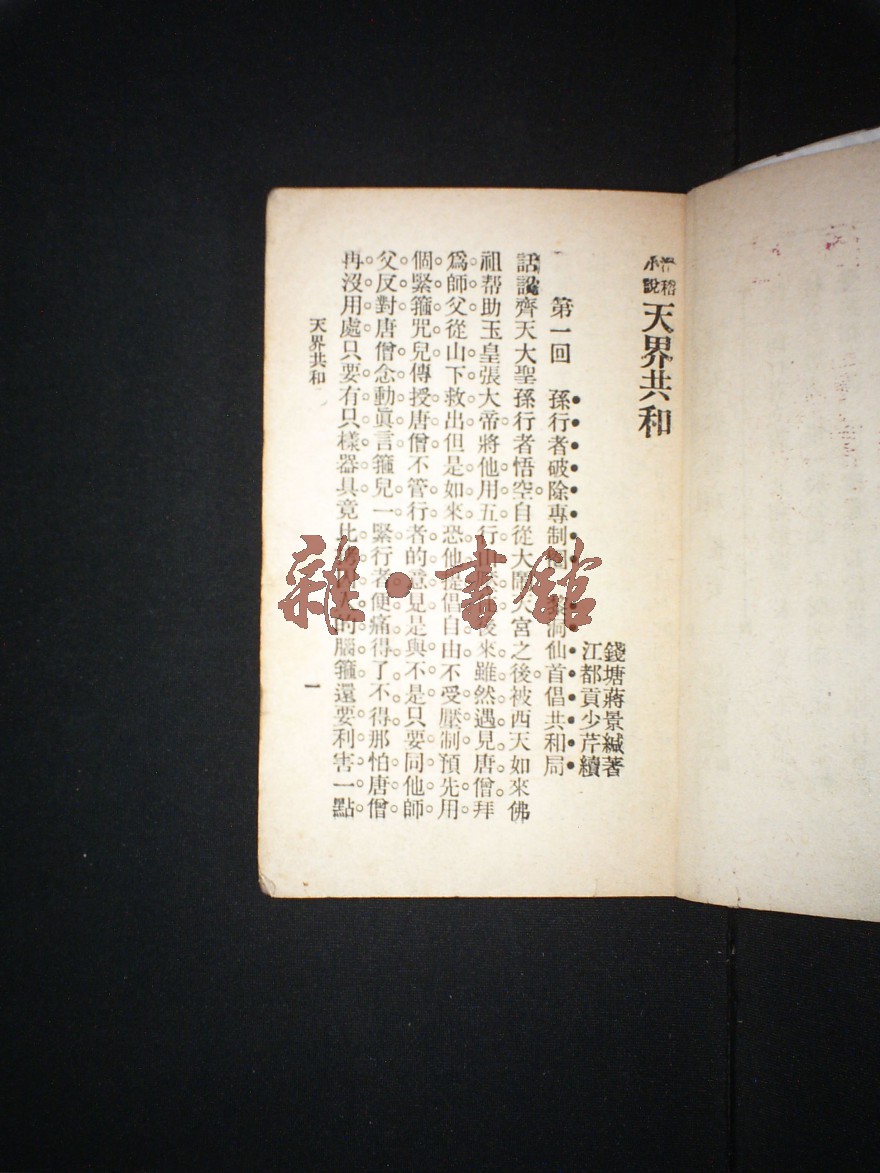 滑稽小說 天界共和
錢塘蔣景緘著
江都貢少芹續
第一回 孫行者破除專制 洞仙首倡共和局
話說齊天大聖孫行者悟空自從大鬧天宮之後被西天如來佛
祖帮助玉皇張大帝將他用五行山 後來雖然遇見唐僧拜
爲師父從山下救出但是如來恐他提倡自由不受壓制預先用
個緊箍咒兒傳授唐僧不管行者的意見是與不是只要同他師
父反對唐僧念動眞言箍兒一緊行者便痛得了不得那怕唐僧
再沒用處只要有只樣器具竟比 的腦箍還要利害一點
天界共和
一
雜·書館